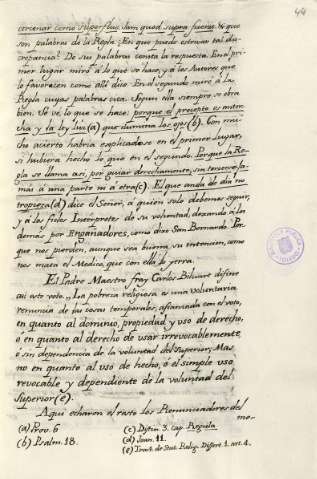 44
cercenar como superfluas. Jam quod supra fuerat. Y que
son palabras de la Regla: En que puede estrivar tal dis-
crepancia? De sus palabras consta la respuesta. En el pri-
mer lugar miró a lo que se hace, y a los Autores que
lo favorecen como allí dice. En el segundo miró a la
Regla cuyas palabras cita. Segun ella siempre se obra
bien. Se vé, lo que se hace: porque el precepto es antor-
cha y la ley luz (a) que ilumina los ojos (b). Con mu-
cho acierto habria explicadose en el primer lugar,
si hubiera hecho lo que en el segundo. Porque la Re-
gla se llama asi, por guiar derechamente, sin torcerse ja-
mas á una parte ni a otra (c). El que anda de dia no
tropieza (d) dice el Señor, á quien solo debemos seguir,
y á los fieles Interpretes de su voluntad, dexando á los
demas por Engañadores, como dixo San Bernardo. Por
que nos pierden, aunque sea buena su intencion, como
nos mata el Medico, que con ella lo yerra.
El Padre Maestro fray Carlos Biluart difine
asi este voto. „La pobreza religiosa es una voluntaria
renuncia de las cosas temporales, afianzada con el voto,
en quanto al dominio, propiedad y uso de derecho,
o en quanto al derecho de usar irrevocablemente,
ó sin dependencia de la voluntad del Superior; Mas
no en quanto al uso de hecho, ó el simple uso
revocable y dependiente de la voluntad del
Superior (e).
Aqui echaron el resto los Renunciadores del
mo-
(a) Prov. 6
(b) Psalm. 18.
(c) Distin. 3. cap. Regula
(d) Joan. 11.
(e) Tract. de Stat. Relig. Dissert. 1. art. 4.